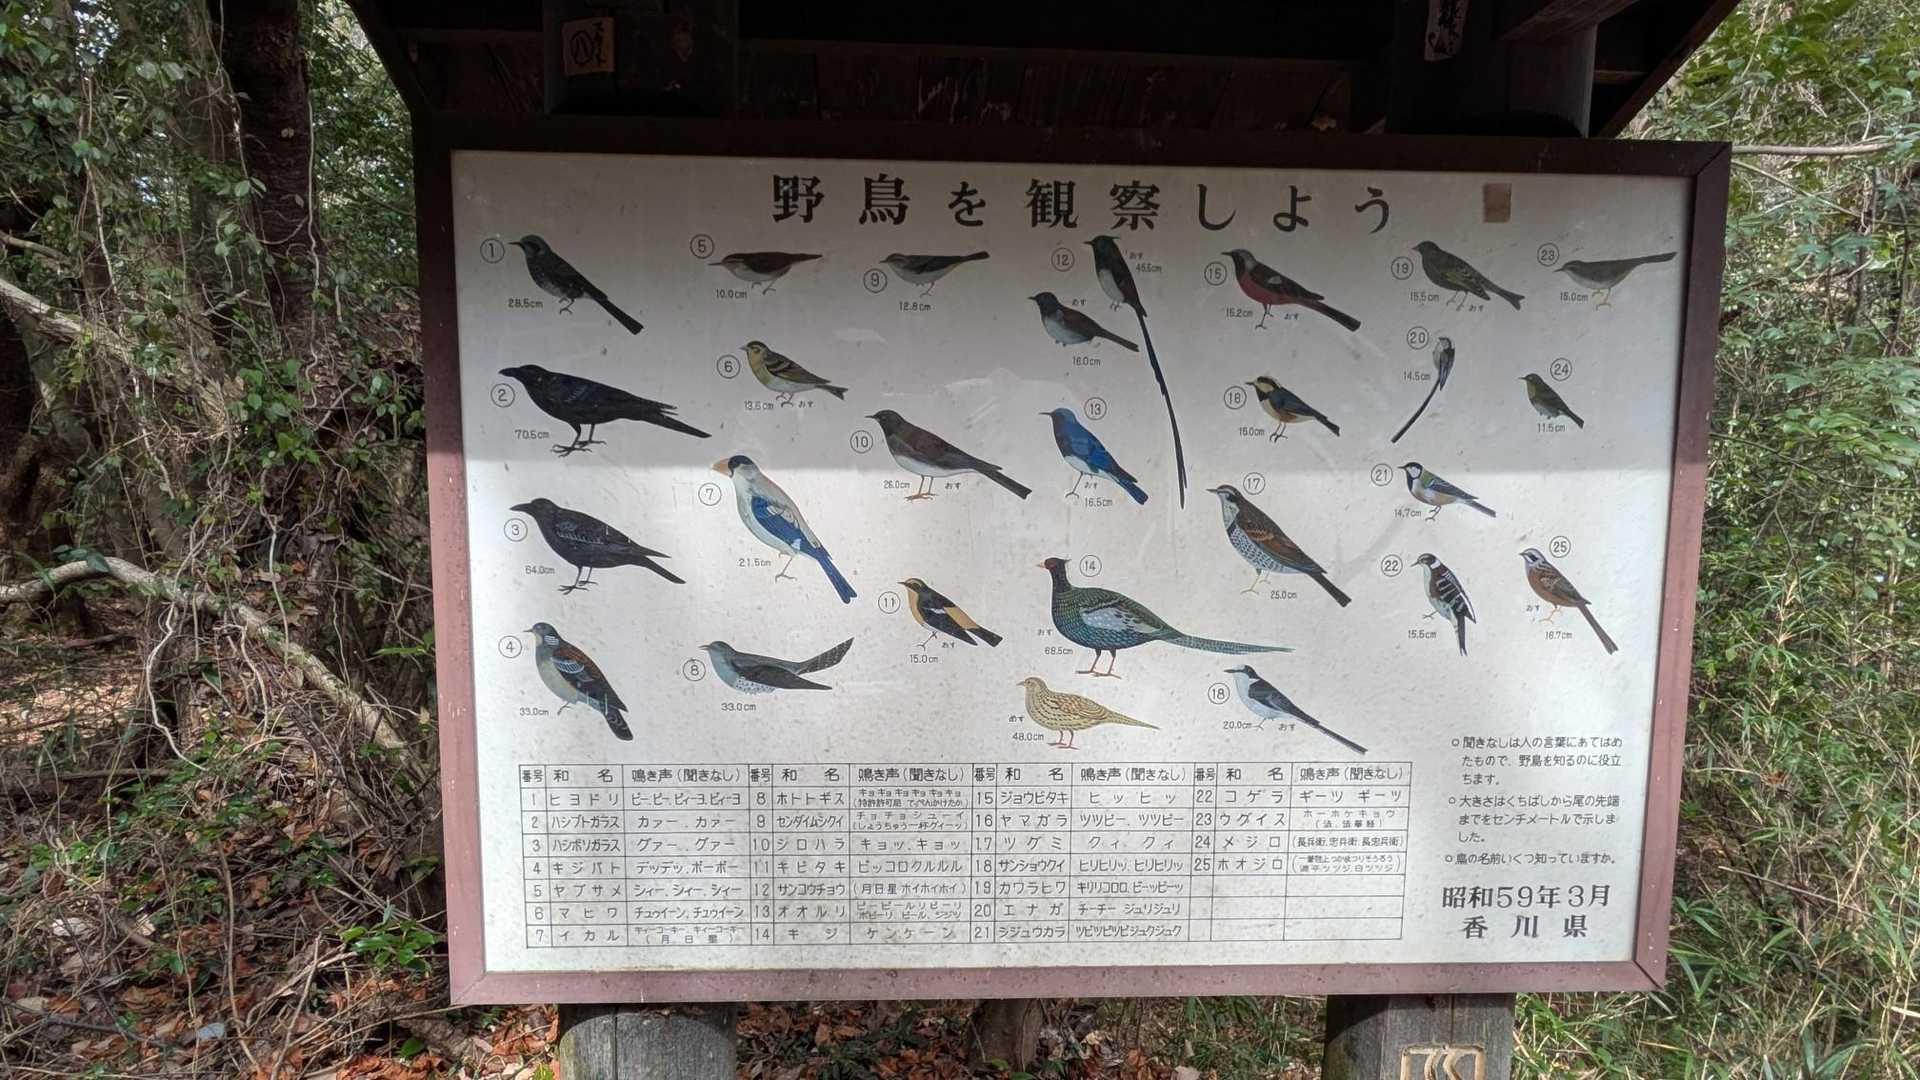 野鳥を観察しよう
① 28.5cm
② 70.5cm
③ 64.0cm
④ 33.0cm
⑤ 10.0cm
⑥ 13.5cm おす
⑦ 21.5cm
⑧ 33.0cm
⑨ 12.8cm
⑩ 26.0cm おす
⑪ 15.0cm おす
⑫ おす 45.5cm
めす 16.0cm
⑬ おす 16.5cm
⑭ おす 68.5cm
めす 48.0cm
⑮ 15.2cm おす
⑰ 25.0cm
⑱ 15.0cm
⑱ 20.0cm おす
⑲ 15.5cm おす
⑳ 14.5cm
㉑ 14.7cm
㉒ 15.5cm
㉓ 15.0cm
㉔ 11.5cm
㉕ おす 16.7cm
番号 和名 鳴き声(聞きなし)
1 ヒヨドリ ピーピーピィーヨピィーヨ
2 ハシブトガラス カァー、カァー
3 ハシボソガラス グァー、グァー
4 キジバト デッデッ、ポーポー
5 ヤブサメ シィー、シィー、シィー
6 マヒワ チュウイーン、チュウイーン
7 イカル キィーコーキー、キィーコーキー (月日星)
番号 和名 鳴き声(聞きなし)
8 ホトトギス キョキョキョキョキョキョ (特許許可局 てっぺんかけたか)
9 センダイムシクイ チョチョシューイ (しょうちゅう一杯グイーッ)
10 シロハラ キョッ、キョッ
11 キビタキ ピッコロクルルル
12 サンコウチョウ (月日星ホイホイホイ)
13 オオルリ
14 キジ ケンケーン
番号 和名 鳴き声(聞きなし)
15 ジョウビタキ ヒッヒッ
16 ヤマガラ ツツピー、ツツピー
17 ツグミ クィクィ
18 サンショウクイ ヒリヒリッ、ヒリヒリッ
19 カワラヒワ キリリコロロ、ビーッビーッ
20 エナガ チーチージュリジュリ
21 シジュウカラ ツピツピツピジュクジュク
番号 和名 鳴き声(聞きなし)
22 コゲラ ギーツギーツ
23 ウグイス ホーホケキョウ (法、法華経)
24 メジロ (長兵衛、忠兵衛、長忠兵衛)
25 ホオジロ (一筆啓上つかまつりそうろう 源平ツツジ、白ツツジ)
○聞きなしは人の言葉にあてはめ
たもので、野鳥を知るのに役立
ちます。
○大きさはくちばしから尾の先端
までをセンチメートルで示しま
した。
○鳥の名前いくつ知っていますか。
昭和59年3月
香川県